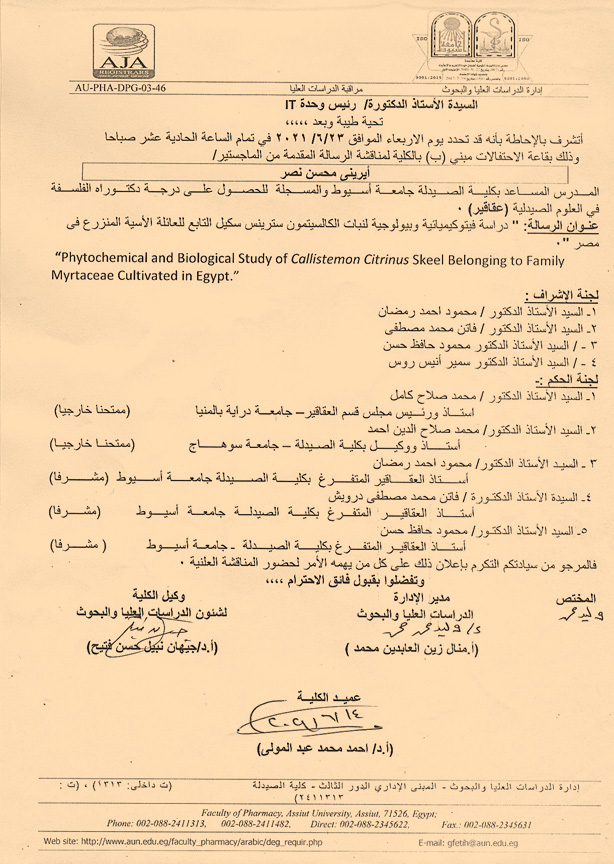 AJA
REGISTRARS
AU-PHA-DPG-03-46
مراقبة الدراسات العليا
إدارة الدراسات العليا والبحوث
السيدة الأستاذ الدكتورة/ رئيس وحدة IT
تحية طيبة وبعد ،،،،،
أتشرف بالإحاطة بأنه قد تحدد يوم الاربعاء الموافق ٢٠٢١/٦/٢٣ في تمام الساعة الحادية عشر صباحا
وذلك بقاعة الاحتفالات مبني (ب) بالكلية لمناقشة الرسالة المقدمة من الماجستير/
أيريني محسن نصر
المدرس المساعد بكلية الصيدلة جامعة أسيوط والمسجلة للحصول على درجة دكتوراه الفلسفة
في العلوم الصيدلية (عقاقير) ٠
عنوان الرسالة: " دراسة فيتوكيميائية وبيولوجية لنبات الكالسيتمون سترينس سكيل التابع للعائلة الأسية المنزرع فى
مصر "٠
“Phytochemical and Biological Study of Callistemon Citrinus Skeel Belonging to Family
Myrtaceae Cultivated in Egypt.”
لجنة الإشراف :
١- السيد الأستاذ الدكتور / محمود احمد رمضان
٢- السيد الأستاذ الدكتور / فاتن محمد مصطفى
٣ - / السيد الأستاذ الدكتور محمود حافظ حسن
٤ - / السيد الأستاذ الدكتور سمير أنيس روس
لجنة الحكم :-
١- السيد الأستاذ الدكتور / محمد صلاح كامل
استاذ ورئيس مجلس قسم العقاقير– جامعة دراية بالمنيا (ممتحنا خارجيا)
٢- السيد الأستاذ الدكتور/ محمد صلاح الدين احمد
أستاذ ووكيل بكلية الصيدلة – جامعة سوهاج (ممتحنا خارجيا)
٣ - السيد الأستاذ الدكتور/ محمود احمد رمضان
أستاذ العقاقير المتفرغ بكلية الصيدلة جامعة أسيوط (مشرفا)
٤- السيدة الأستاذ الدكتورة / فاتن محمد مصطفى درويش
أستاذ العقاقير المتفرغ بكلية الصيدلة جامعة أسيوط (مشرفا)
٥- السيد الأستاذ الدكتور/ محمود حافظ حسن
أستاذ العقاقير المتفرغ بكلية الصيدلة - جامعة أسيوط ( مشرفا)
فالمرجو من سيادتكم التكرم بإعلان ذلك على كل من يهمه الأمر لحضور المناقشة العلنية ٠
وتفضلوا بقبول فائق الاحترام ،،،،
المختص
مدير الإدارة
الدراسات العليا والبحوث
(أ.منال زين العابدين محمد )
وكيل الكلية
لشئون الدراسات العليا والبحوث
(أ.د/جيهان نبيل حسن فتيح)
عميد الكلية
٢٠٢١/٦/١٤
(أ.د/ احمد محمد عبد المولى)
إدارة الدراسات العليا والبحوث - المبنى الإداري الدور الثالث - كلية الصيدلة (ت داخلى: ٤٣١٣) ، (ت :
٢٤١١٣١٣)
Faculty of Pharmacy, Assiut University, Assiut, 71526, Egypt;
Phone: 002-088-2411313, 002-088-2411482, Direct: 002-088-2345622, Fax.: 002-088-2345631
Web site: http://www.aun.edu.eg/faculty_pharmacy/arabic/deg_requir.php E-mail: gfetih@aun.edu.eg